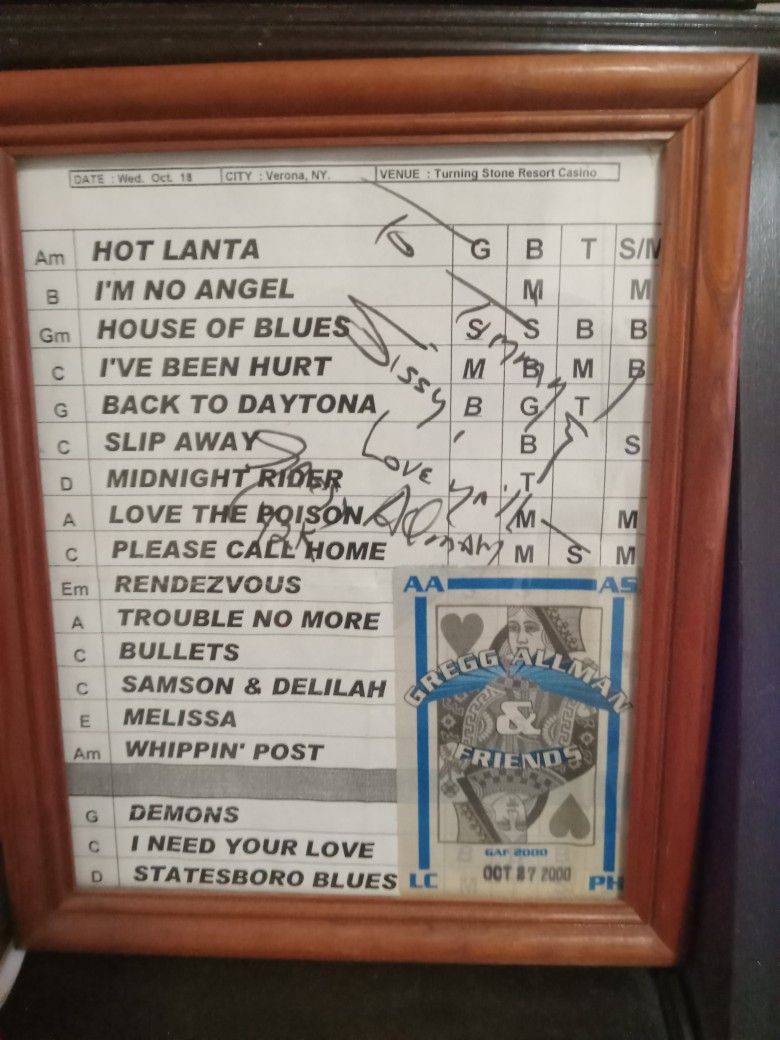 DATE : Wed. Oct. 18 CITY : Verona, NY. VENUE : Turning Stone Resort Casino
Am HOT LANTA G B T S/M
B I'M NO ANGEL M M
Gm HOUSE OF BLUES S S B B
C I'VE BEEN HURT M B M B
G BACK TO DAYTONA B G T
C SLIP AWAY B S
D MIDNIGHT RIDER T
A LOVE THE POISON M M
C PLEASE CALL HOME M S M
Em RENDEZVOUS
A TROUBLE NO MORE
C BULLETS
C SAMSON & DELILAH
E MELISSA
Am WHIPPIN' POST
G DEMONS
C I NEED YOUR LOVE
D STATESBORO BLUES
To
Love Ya'll
Allman
AA AS
GREGG ALLMAN
&
FRIENDS
GAF 2000
LC OCT 27 2000 PH